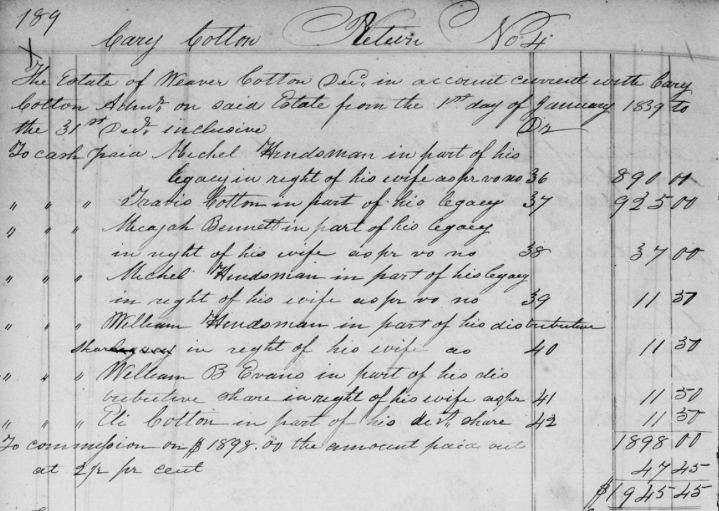 189
Cary Cotton Return No 4
X
The Estate of Weaver Cotton Decd. in account current with Cary
Cotton Admr. on said Estate from the 1st day of January 1839 to
the 31st Decr. inclusive Dr
To cash paid Michel Hindsman in part of his
legacy in right of his wife as pr vo no 36 890 00
" " " Travis Cotton in part of his legacy 37 925 00
" " " Micajah Bennett in part of his legacy
in right of his wife as pr vo no 38 37 00
" " " Michel Hindsman in part of his legacy
in right of his wife as pr vo no 39 11 50
" " " William Hindsman in part of his distributive
share in right of his wife as 40 11 50
" " " William B Evans in part of his dis
tributive share in right of his wife as pr 41 11 50
" " " Eli Cotton in part of his dist. share 42 11 50
To commission on $1898.00 the amount paid out 1898 00
at 2½ pr cent 47 45
$1945 45